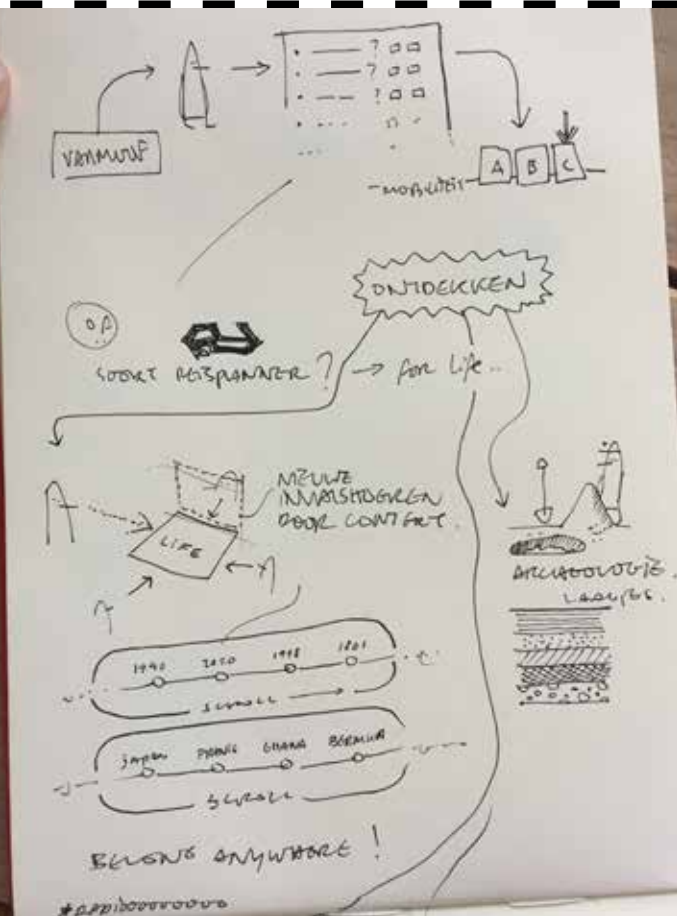 ? 
? 
? 
VANMOOF
A B C
MOBILITEIT
ONTDEKKEN
SOORT REISPLANNER? → for life..
NIEUWE
INVALSHOEKEN
DOOR CONTEXT.
LIFE
ARCHAEOLOGIE.
LAAGJES.
1940 2020 1998 1801
SCROLL
GHANA BERMUDA
SCROLL
BELONG ANYWHERE!